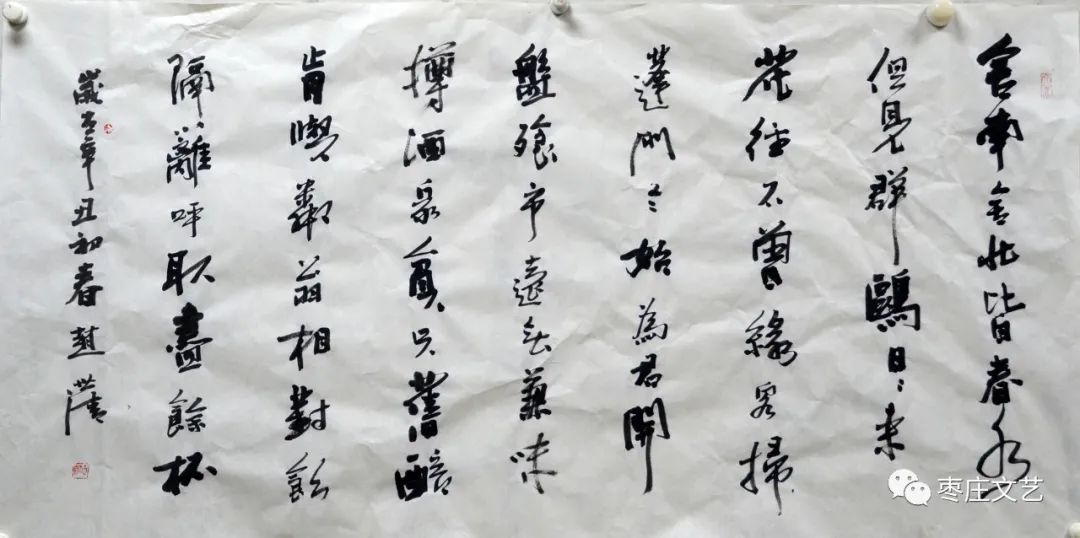 舍南舍北皆春水
但見群鷗日〻來
花徑不曾緣客掃
蓬門今始為君開
盤飧市遠無兼味
樽酒家貧只舊醅
肯與鄰翁相對飲
隔籬呼取盡餘杯
歲在辛丑初春趙
枣庄文艺